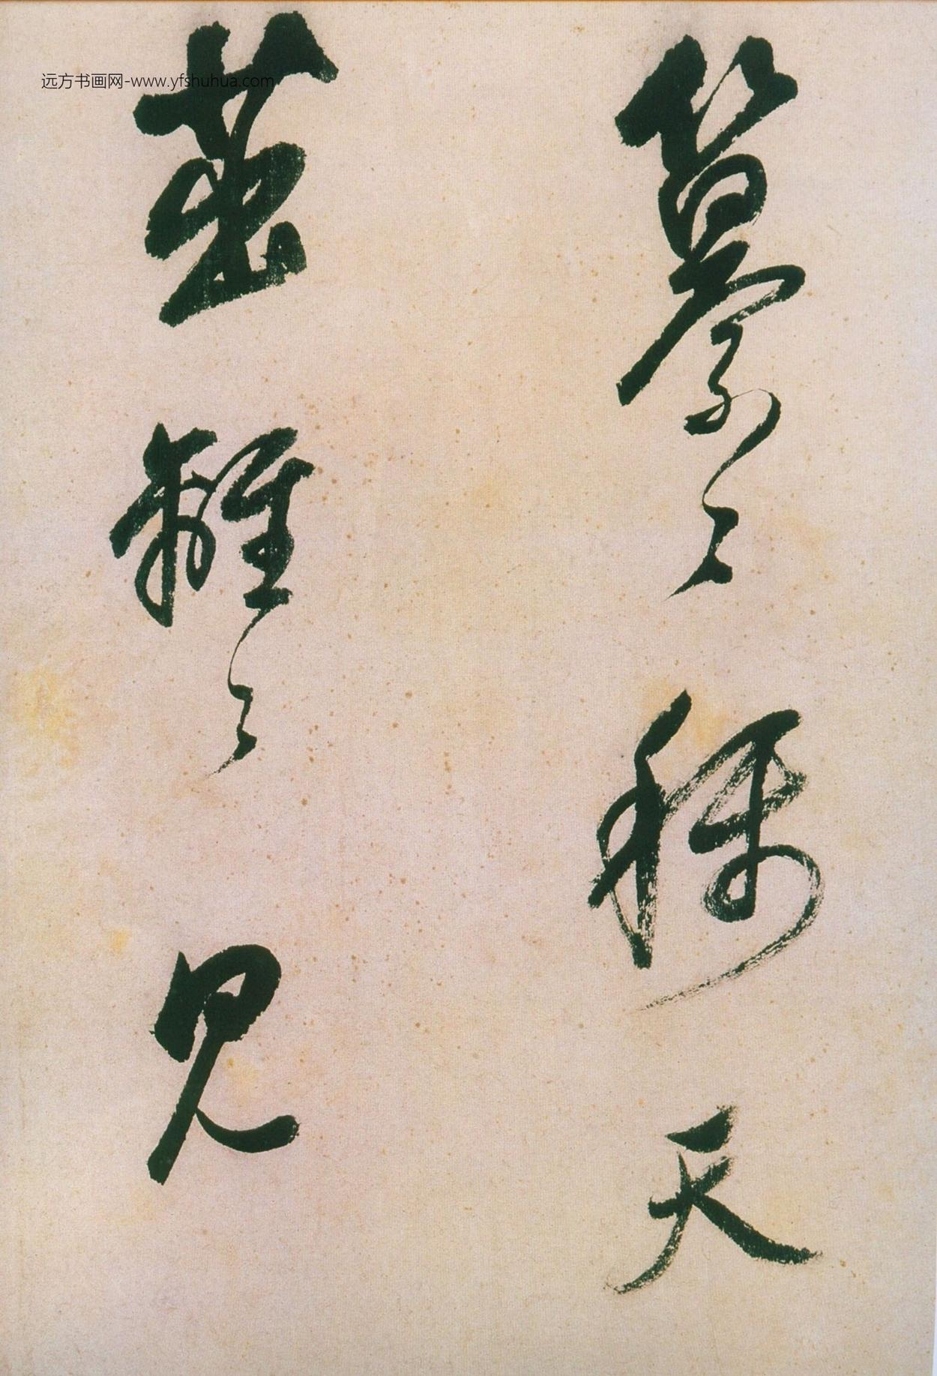 远方书画网-www.yfshuhua.com
纂々稱天
茁離々見